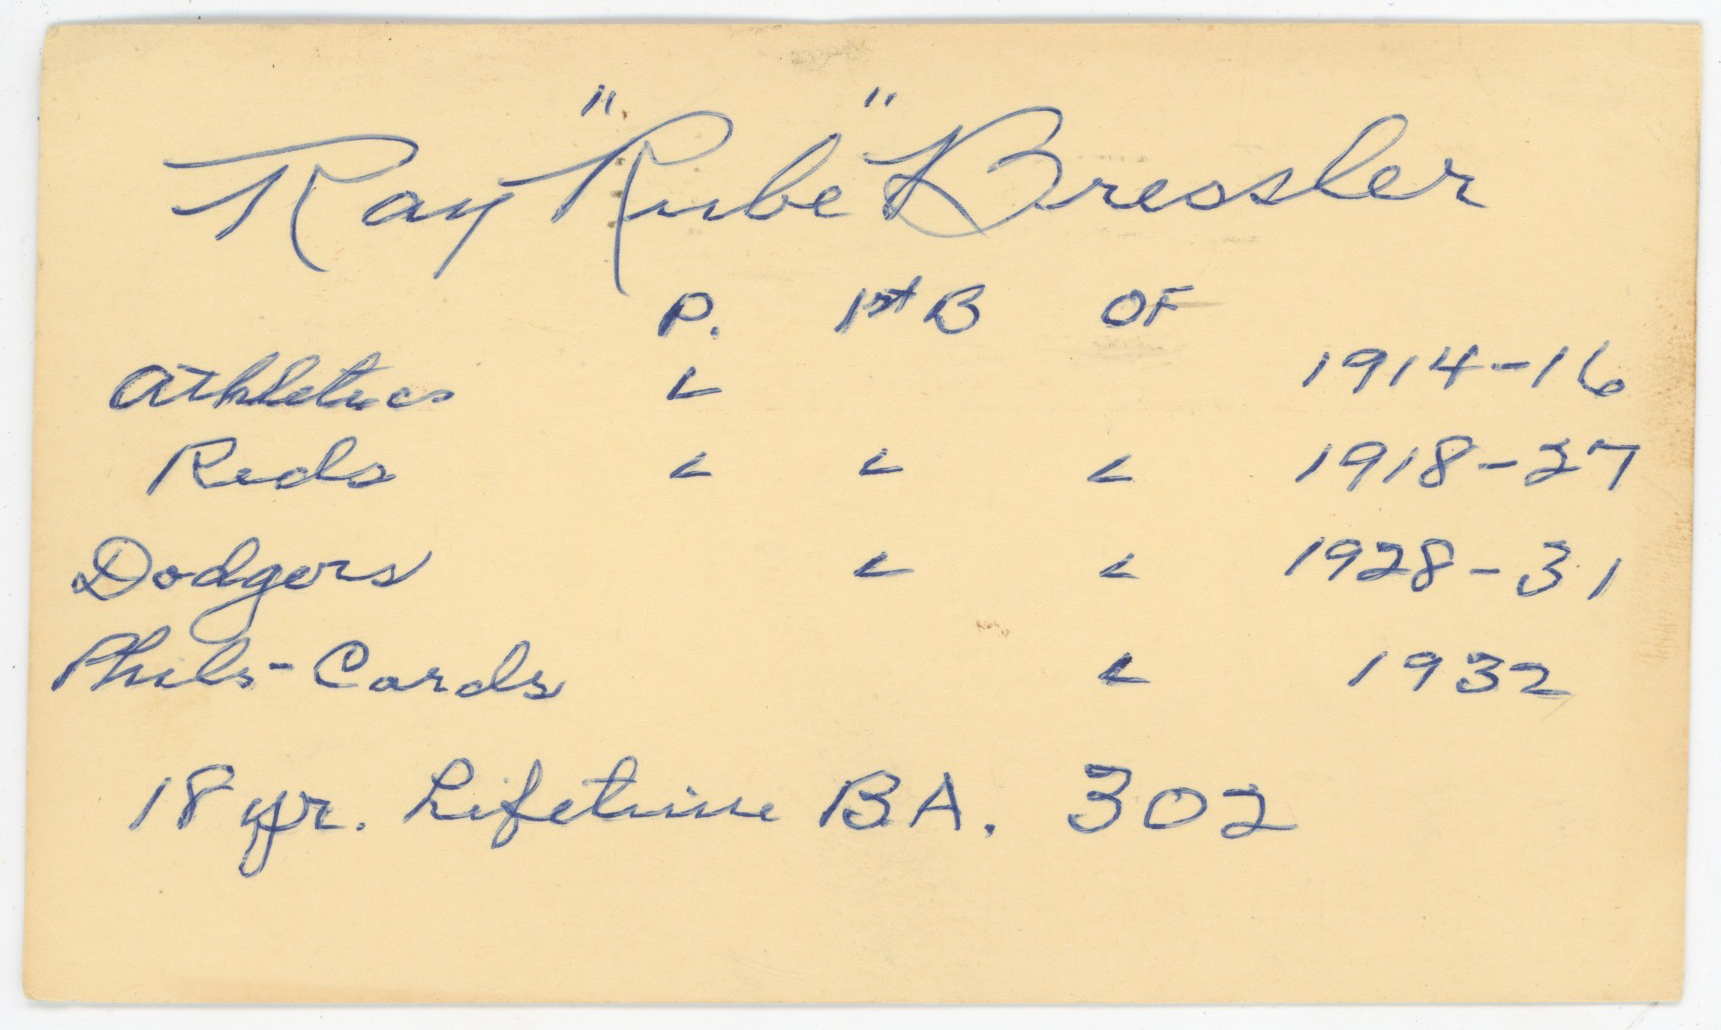 Ray "Rube" Bressler
P. 1st B OF
Athletics ✓ 1914-16
Reds ✓ ✓ ✓ 1918-27
Dodgers ✓ ✓ 1928-31
Phils-Cards ✓ 1932
18 yr. Lifetime BA. 302